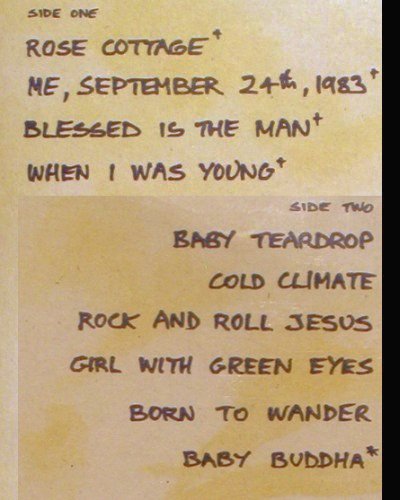 SIDE ONE
ROSE COTTAGE+
ME, SEPTEMBER 24th, 1983+
BLESSED IS THE MAN+
WHEN I WAS YOUNG+
SIDE TWO
BABY TEARDROP
COLD CLIMATE
ROCK AND ROLL JESUS
GIRL WITH GREEN EYES
BORN TO WANDER
BABY BUDDHA*